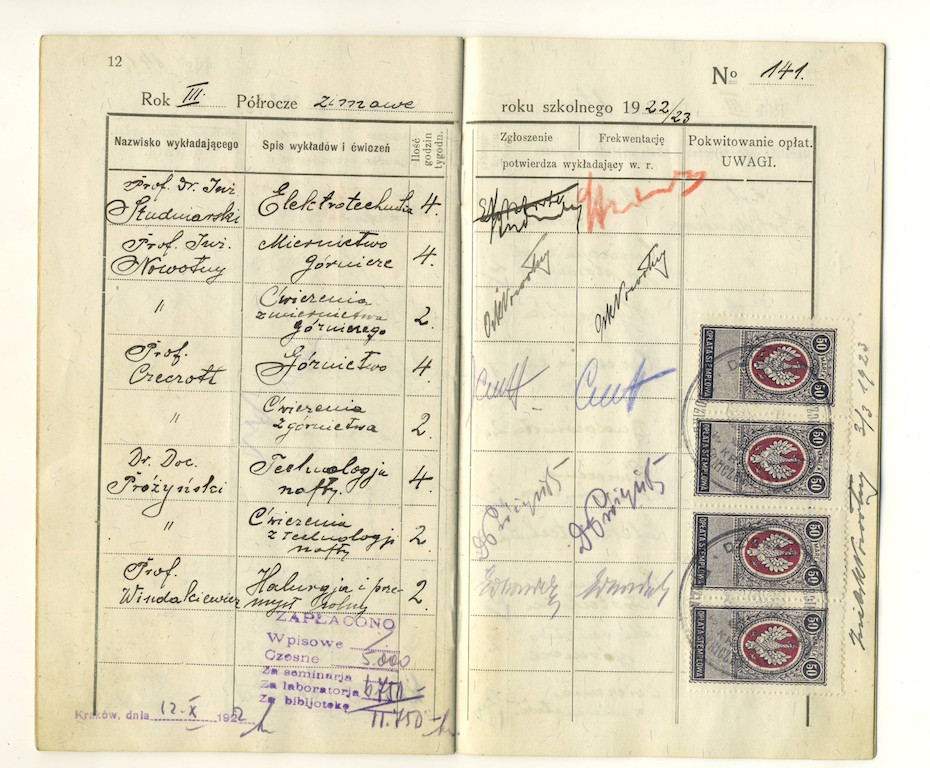 12
Nº 141.
Rok III. Półrocze zimowe
roku szkolnego 1922/23
Nazwisko wykładającego
Spis wykładów i ćwiczeń
Ilość godzin tygodn.
Zgłoszenie
Frekwentację
potwierdza wykładający w. r.
Pokwitowanie opłat.
UWAGI.
Prof. Dr. Inż.
Studniarski
Elektrotechnika
4.
Prof. Inż.
Nowotny
Miernictwo
górnicze
4.
"
Ćwiczenia
z miernictwa
górniczego
2.
Prof.
Czeczott
Górnictwo
4
"
Ćwiczenia
z górnictwa
2.
Dr. Doc.
Prózyński
Technologja
nafty.
4
"
Ćwiczenia
z technologji
nafty
2.
Prof.
Windakiewicz
Halurgja i prze-
mysł solny
2.
ZAPŁACONO
Wpisowe
Czesne 5.000
Za seminarja
Za laboratorja 6750
Za bibljotekę
11.750
Kraków, dnia 12-X 1922
OPŁATA STEMPLOWA
50
50
OPŁATA STEMPLOWA
50
50
OPŁATA STEMPLOWA
50
50
OPŁATA STEMPLOWA
50
50
3/3 1923